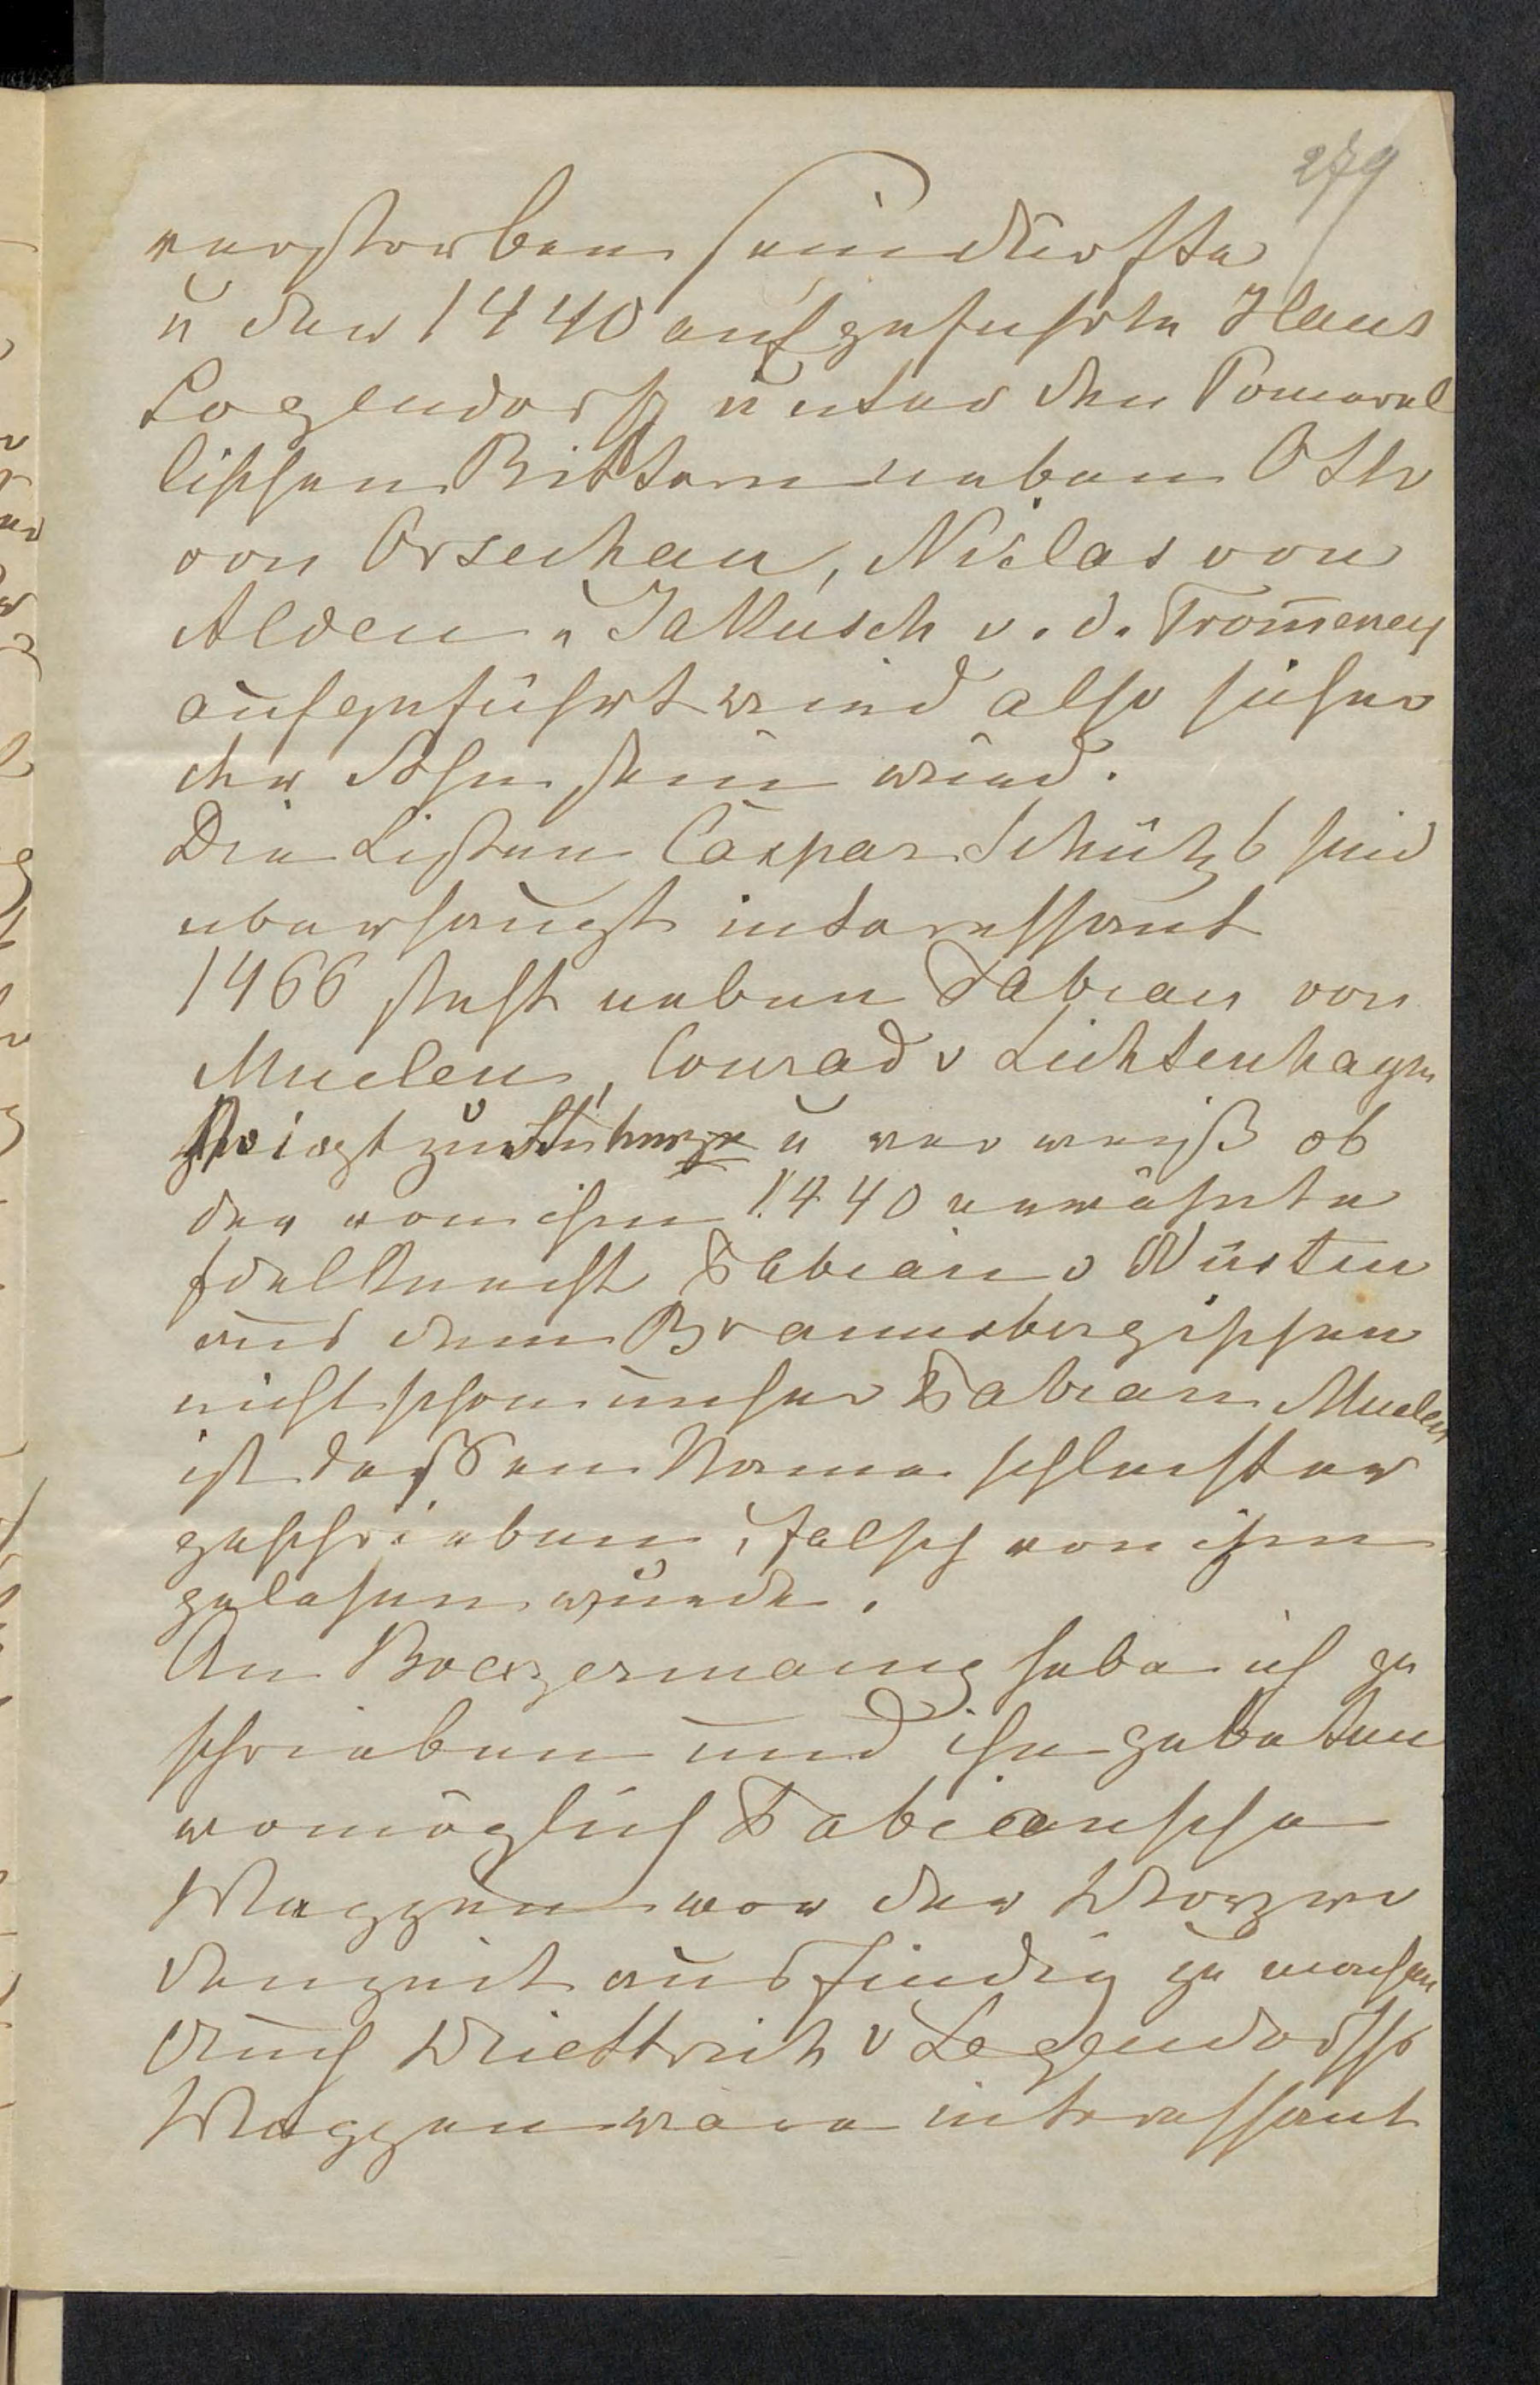 279
verstorben sein dürfte
u der 1440 aufgefuhrte Hans
Logendorf unter den Pomesel
lischen Rittern neben Otto
von Orsechau, Niclas von
Alden u Jakusch v. d. Trom̄eney
aufgeführt wird also sicher
der Sohn sein wird.
Die Listen Caspar Schütz's sind
uberhaupt interessant
1466 steht neben Fabian von
Muelen, Conrad v Lichtenhagen
Voigt zu u wer weiß ob
der von ihm 1440 erwähnte
Edelknecht Fabian v Wusten
aus dem Braunsbergischen
nicht schon unser Fabian Muelen
ist dessen Name schlechter
geschrieben, falsch von ihm
gelesen wurde.
An habe ich ge
schrieben und ihn gebeten
womöglich Fabiansche
Wappen vor der
denzeit ausfindig zu machen
Auch Diettrich v Legendorfs
Wappen wäre interessant